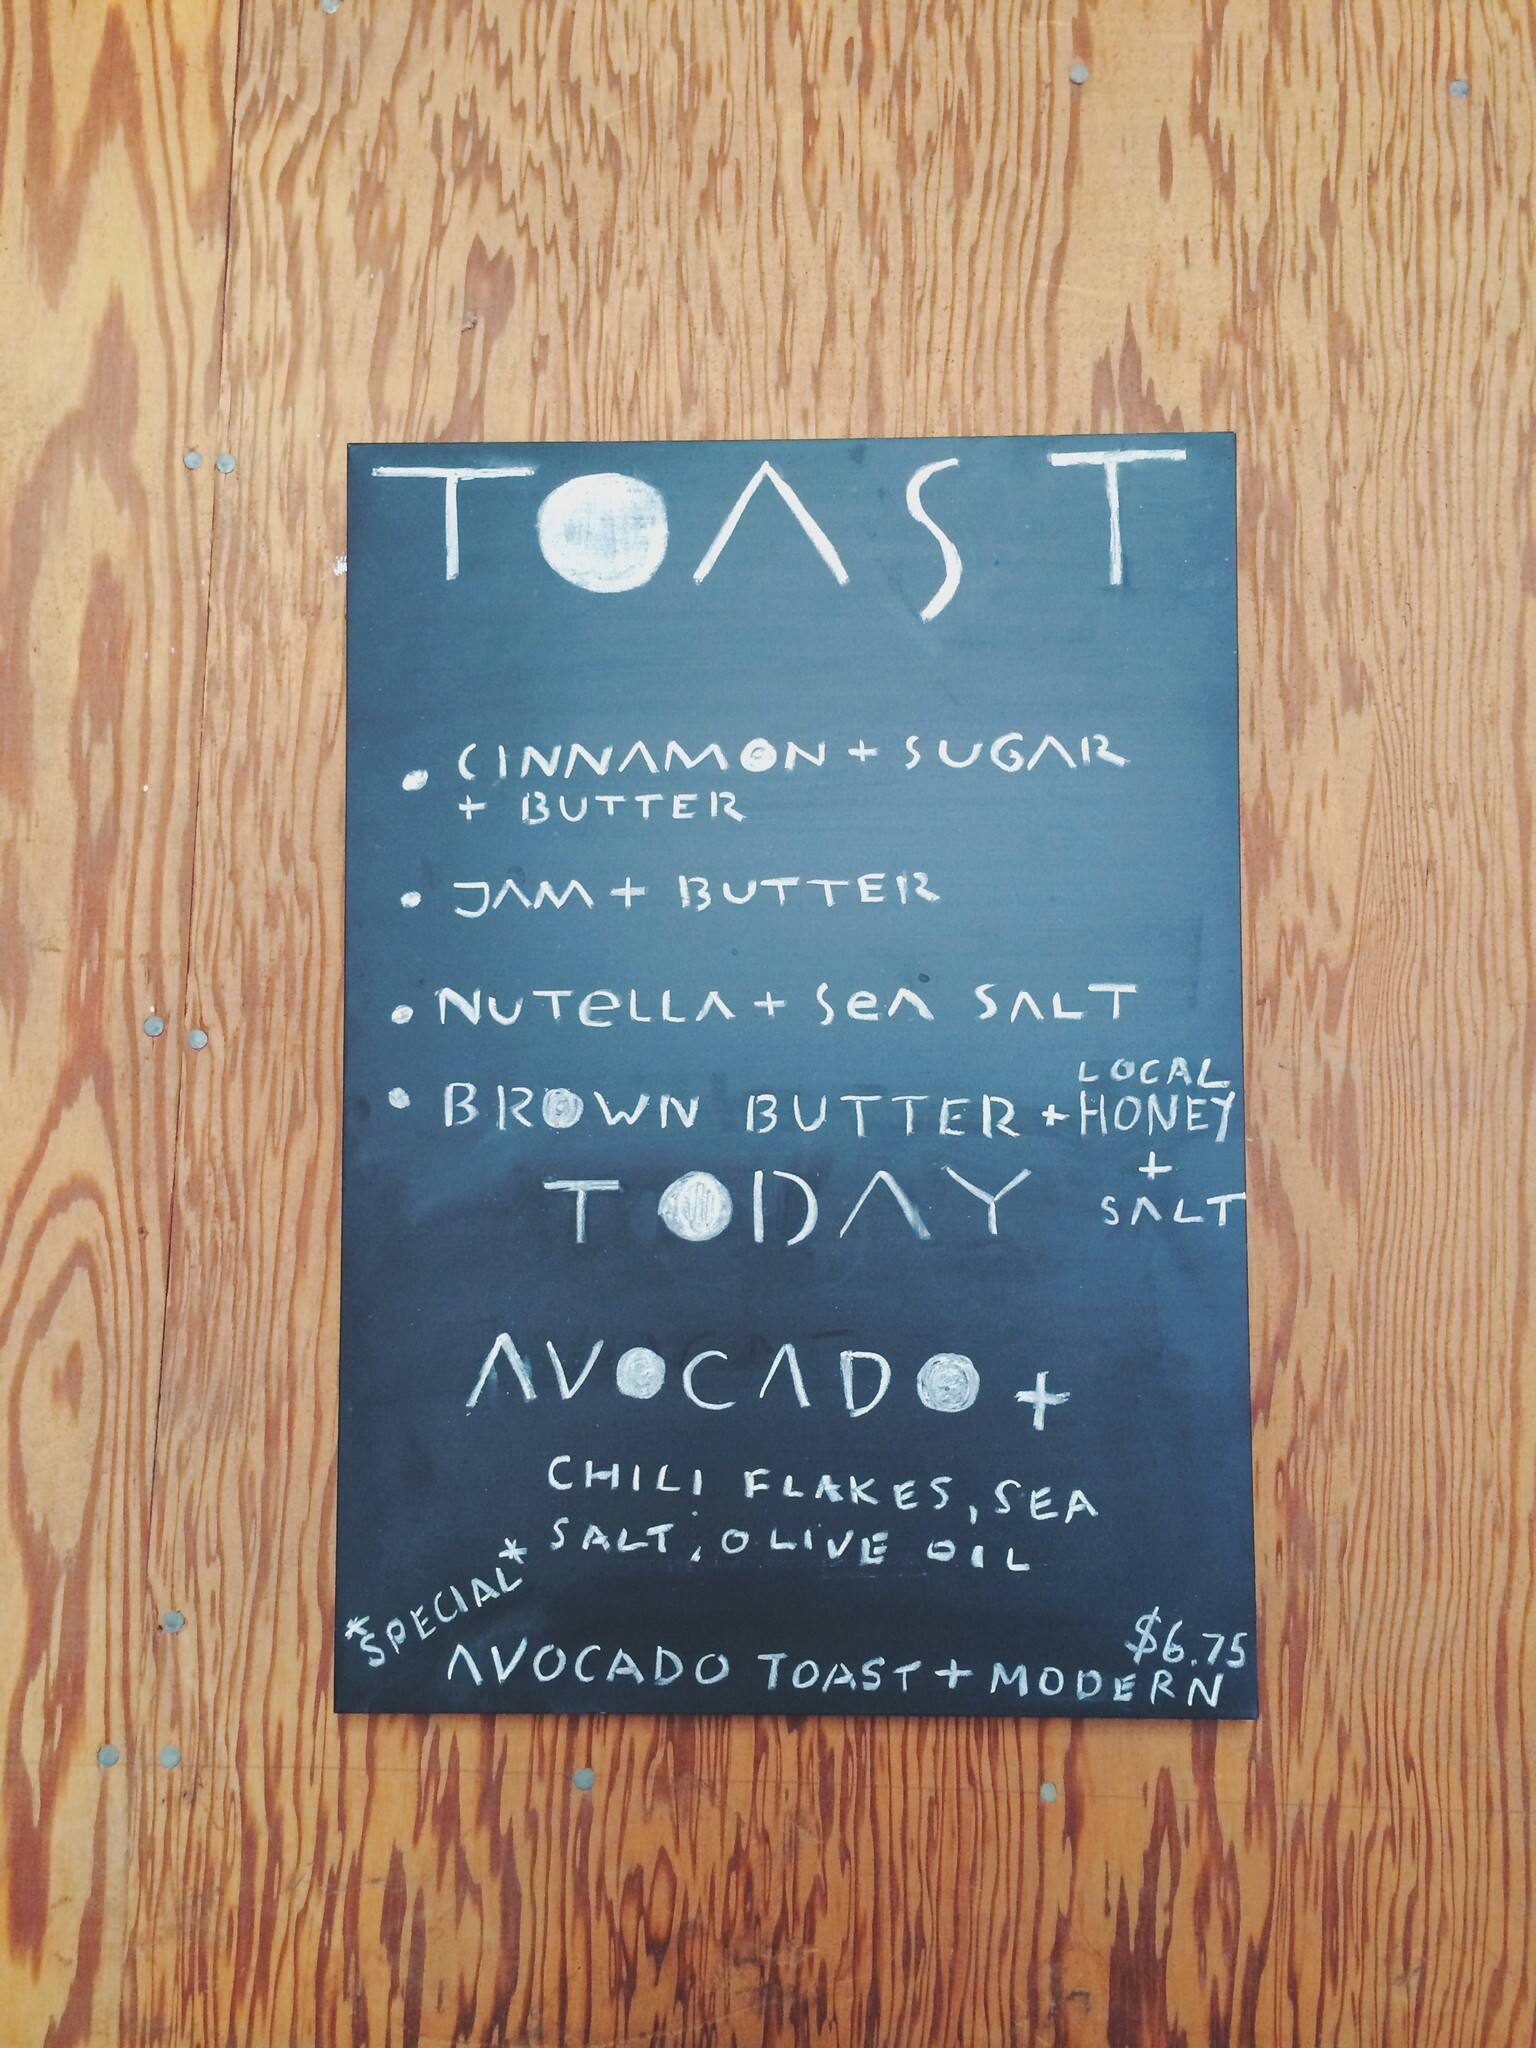 TOAST
• CINNAMON + SUGAR
+ BUTTER
• JAM + BUTTER
• NUTELLA + SEA SALT
• BROWN BUTTER + LOCAL HONEY
+
SALT
TODAY
AVOCADO +
CHILI FLAKES, SEA
SALT, OLIVE OIL
*SPECIAL*
$6.75
AVOCADO TOAST + MODERN